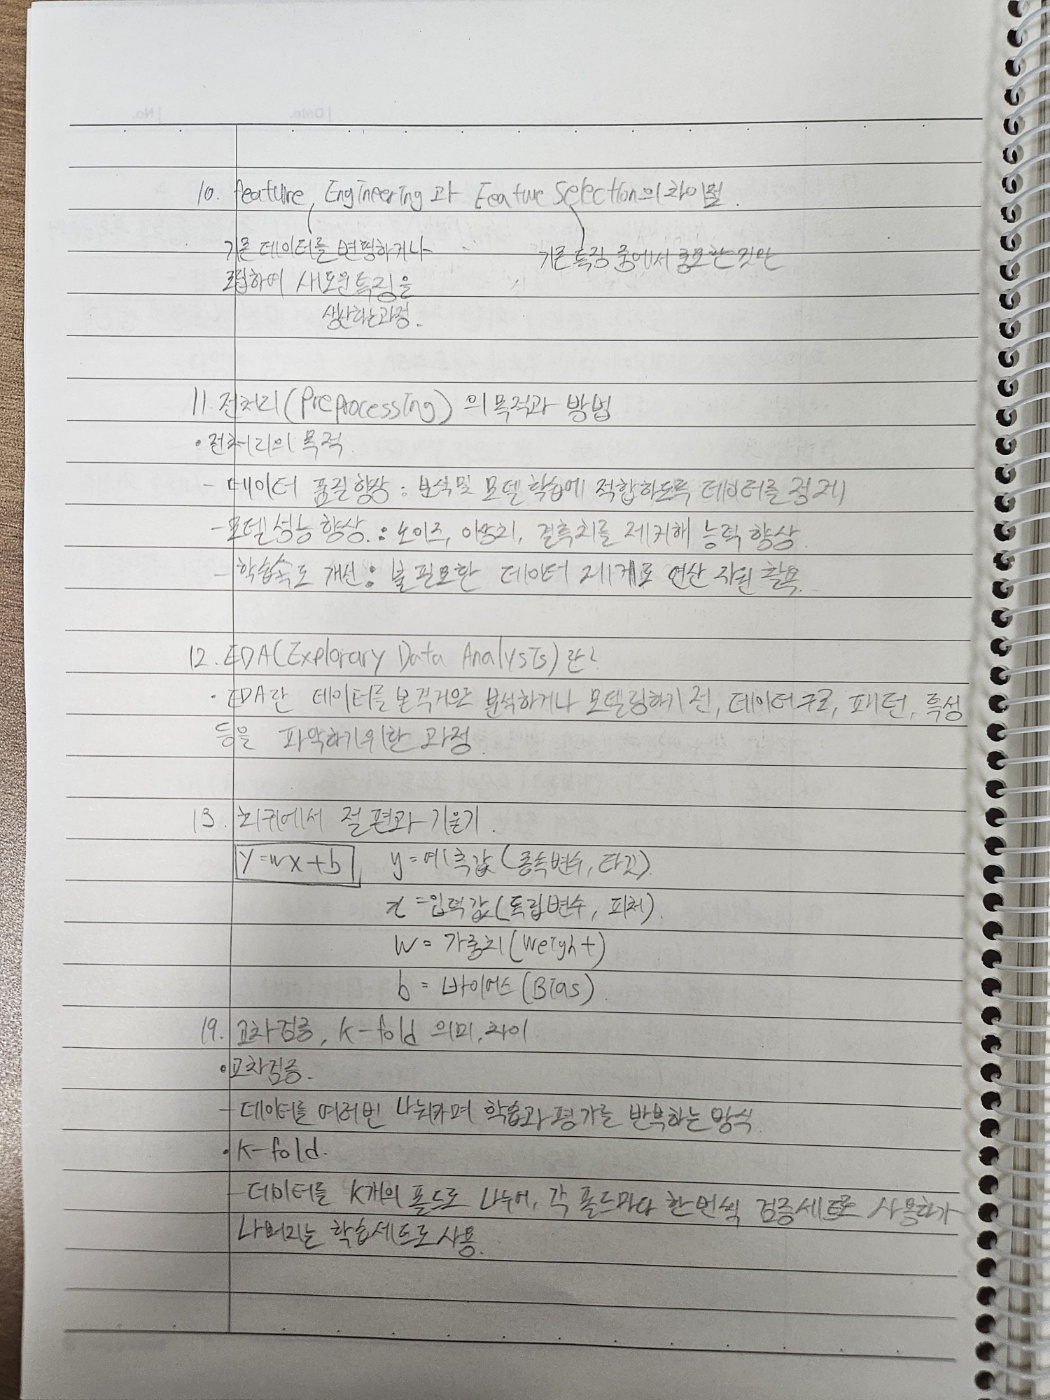 10. feature Engineering 과 Feature Selection의 차이점.
기존 데이터를 변형하거나
조합하여 새로운 특징을
생산하는 과정.
기존 특징 중에서 중요한 것만
11. 전처리(Preprocessing)의 목적과 방법
• 전처리의 목적.
- 데이터 품질 향상 : 분석 및 모델 학습에 적합하도록 데이터를 정제
- 모델 성능 향상. : 노이즈, 이상치, 결측치를 제거해 능력 향상.
- 학습속도 개선 : 불필요한 데이터 제거로 연산 자원 활용.
12. EDA(Explorary Data Analysis)란?
• EDA란 데이터를 본격적으로 분석하거나 모델링하기 전, 데이터 구조, 패턴, 특성
등을 파악하기위한 과정.
13. 회귀에서 절편과 기울기.
y=wx+b
y=예측값(종속변수, 타깃).
x=입력값(독립변수, 피처).
w = 가중치(weight)
b = 바이어스(Bias).
19. 교차검증, K-fold 의미, 차이
• 교차검증.
- 데이터를 여러번 나눠가며 학습과 평가를 반복하는 방식.
• K-fold.
- 데이터를 K개의 폴드로 나누어, 각 폴드마다 한번씩 검증세트로 사용하고
나머지는 학습세트로 사용.